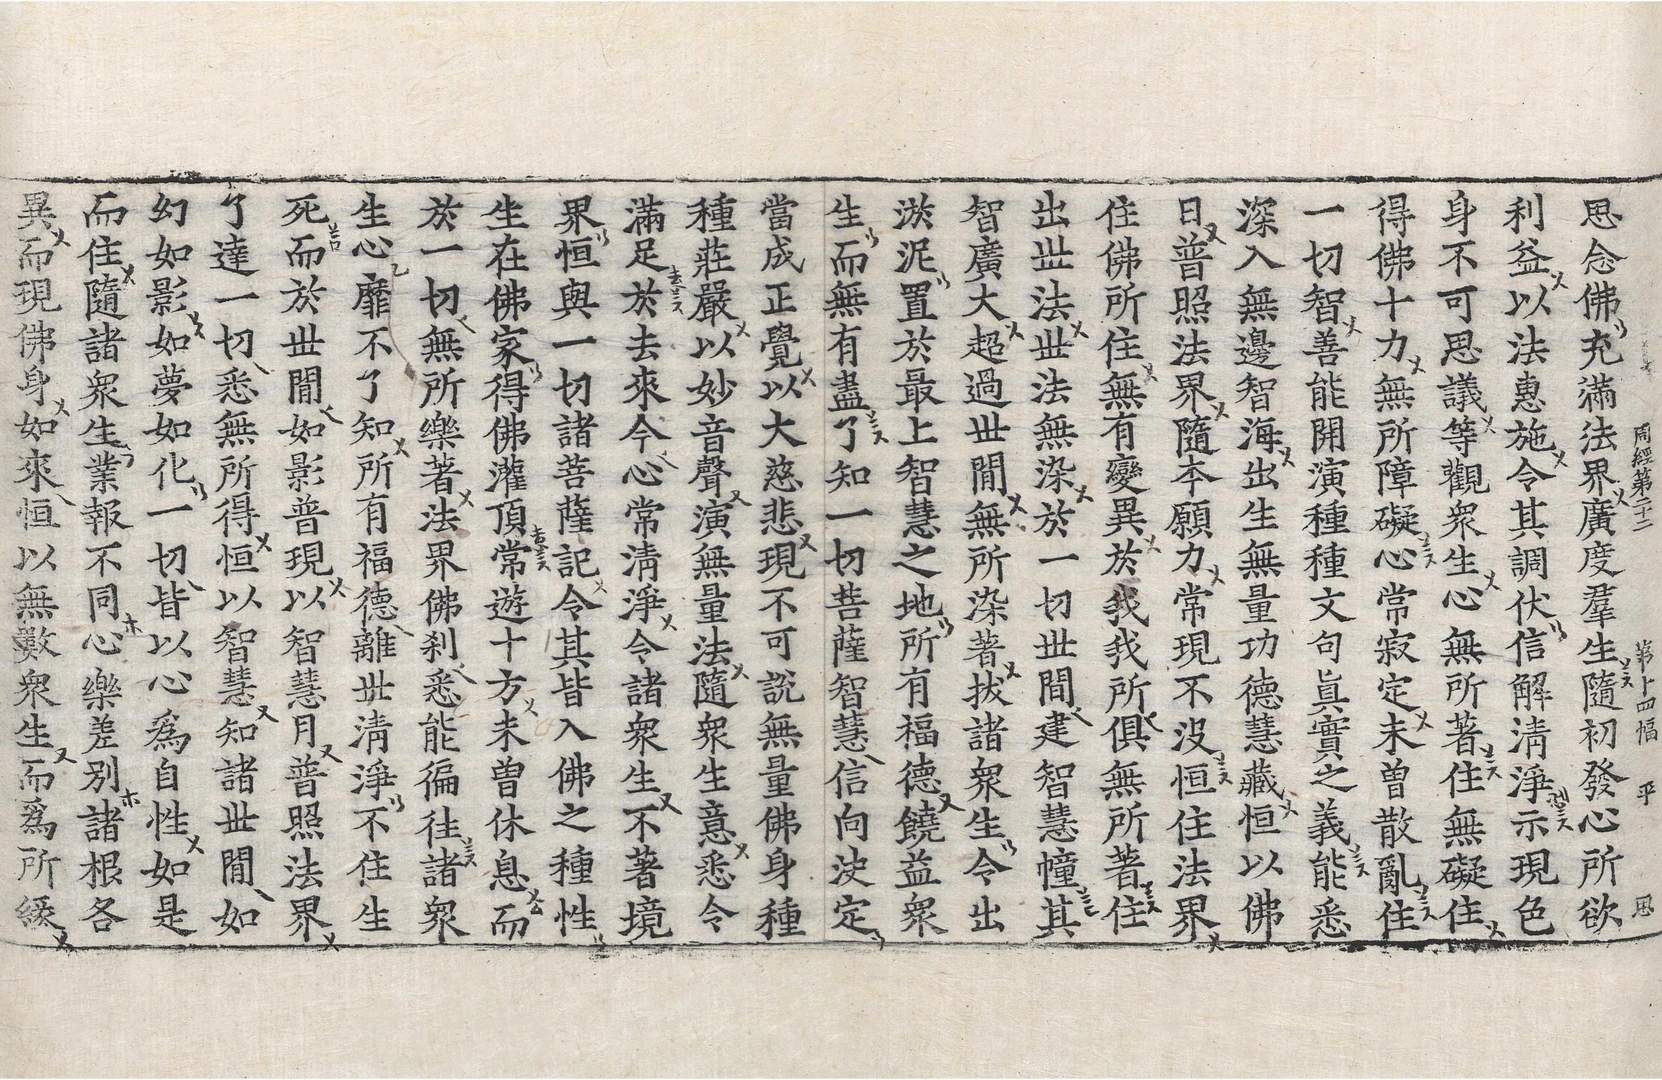 周經第二十二 第十四幅 平 恩
思念佛充滿法界廣度羣生隨初發心所欲
利益以法惠施令其調伏信解清淨示現色
身不可思議等觀衆生心無所著住無礙住
得佛十力無所障礙心常寂定未曾散亂住
一切智善能開演種種文句眞實之義能悉
深入無邊智海出生無量功德慧藏恒以佛
日普照法界隨本願力常現不沒恒住法界
住佛所住無有變異於我我所俱無所著住
出世法世法無染於一切世間建智慧幢其
智廣大超過世間無所染著拔諸衆生令出
淤泥置於最上智慧之地所有福德饒益衆
生而無有盡了知一切菩薩智慧信向決定
當成正覺以大慈悲現不可說無量佛身種
種莊嚴以妙音聲演無量法隨衆生意悉令
滿足於去來今心常淸淨令諸衆生不著境
界恒與一切諸菩薩記令其皆入佛之種性
坐在佛家得佛灌頂常遊十方未曾休息而
於一切無所樂著法界佛刹悉能徧往諸衆
生心靡不了知所有福德離世淸淨不住生
死而於世間如影普現以智慧月普照法界
了達一切悉無所得恒以智慧知諸世間如
幻如影如夢如化一切皆以心爲自性如是
而住隨諸衆生業報不同心樂差別諸根各
異而現佛身如來恒以無數衆生而爲所緣